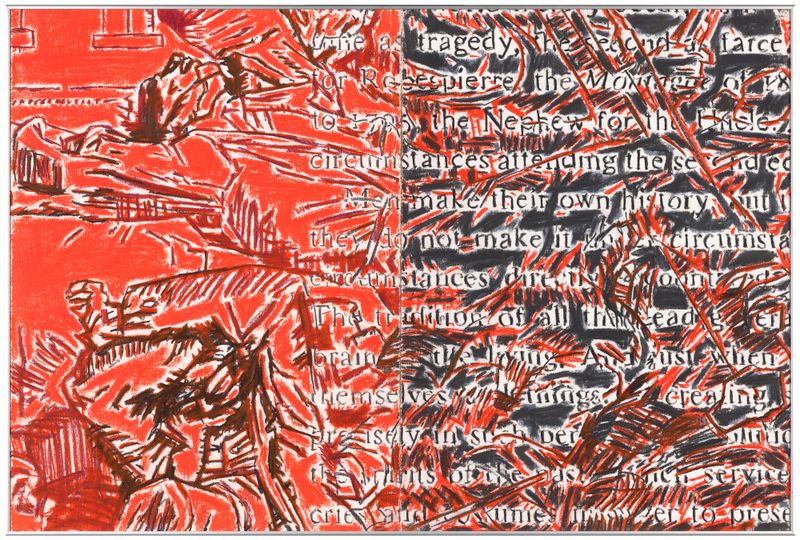 as tragedy, the second as farce
for Robespierre, the Montagne of 18
to 1795, the Nephew for the Uncle.
circumstances attending the second ed
Men make their own history, but
they do not make it circumsta
circumstances directly
The tradition of all the dead
brain the living. And just when
themselves things creating
precisely in such per
the spirits of the past which service
cries and costumes in order to prese